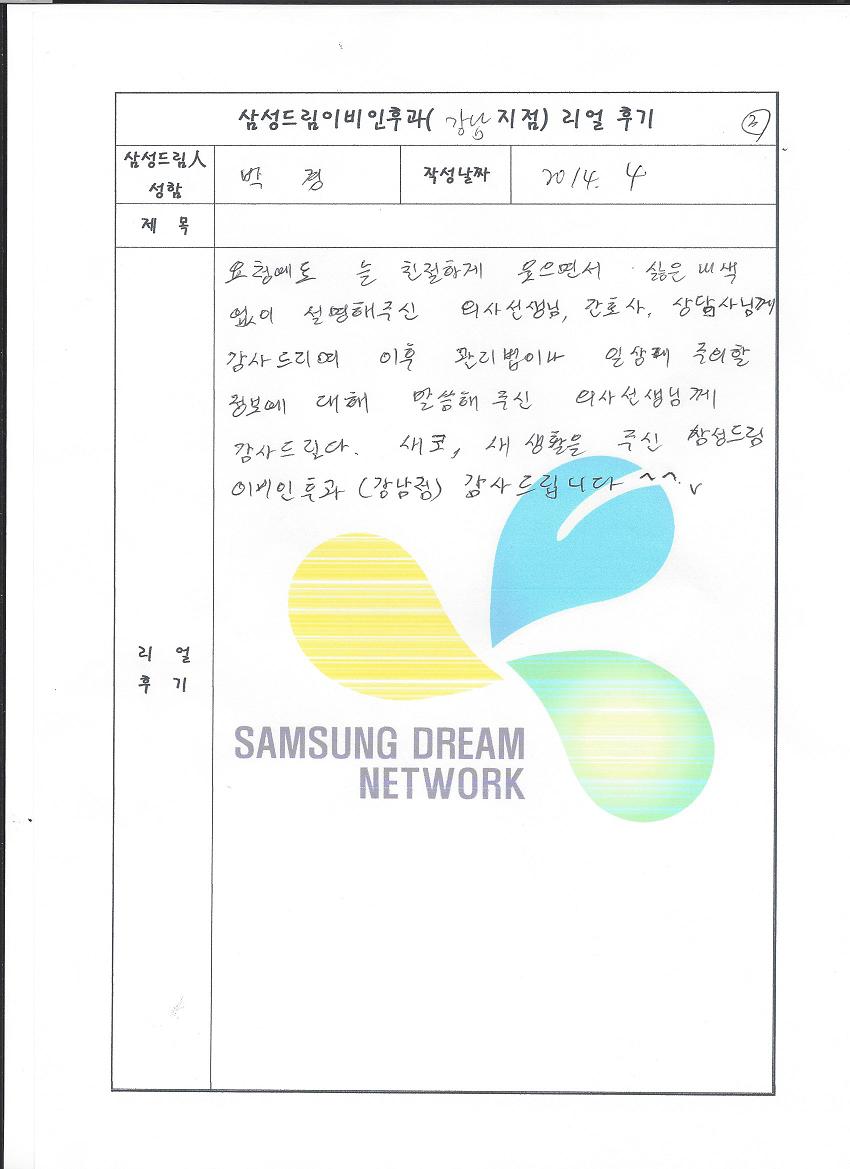 삼성드림이비인후과( 강남 지점) 리얼 후기 ③
삼성드림人 성함 박 경 작성날짜 2014. 4
제 목
요청에도 늘 친절하게 웃으면서 싫은 내색
없이 설명해주신 의사선생님, 간호사, 상담사님께
감사드리며 이후 관리법이나 일상에 주의할
정보에 대해 말씀해 주신 의사선생님께
감사드린다. 새코, 새 생활을 주신 삼성드림
이비인후과 (강남점) 감사드립니다 ^^.
리 얼
후 기
SAMSUNG DREAM
NETWORK